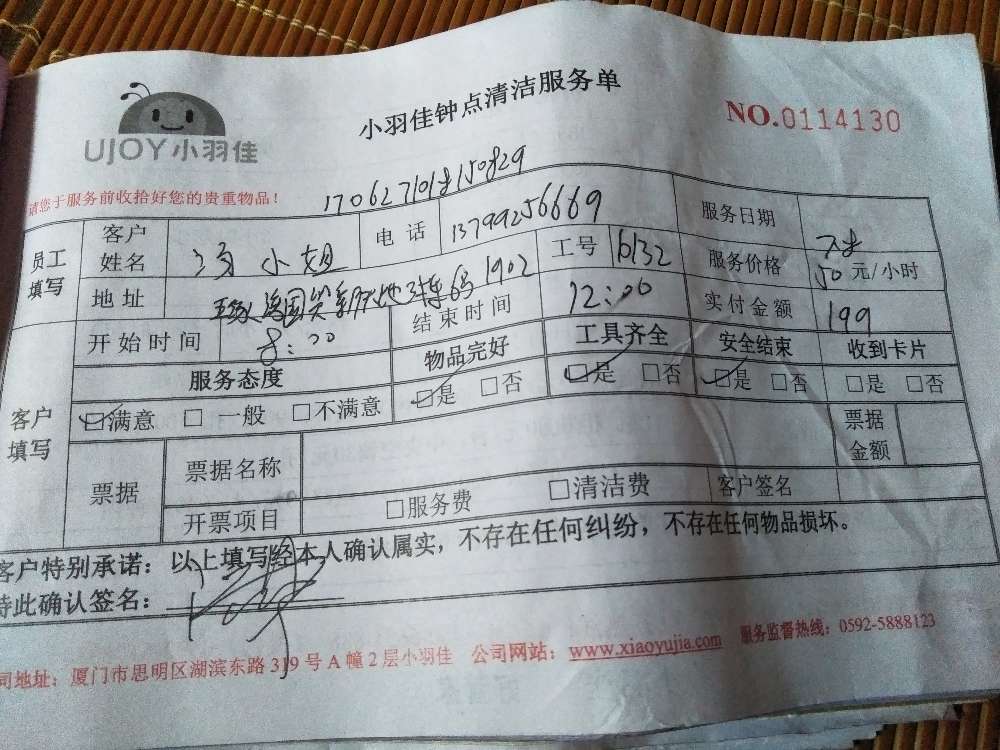 UJOY小羽佳
小羽佳钟点清洁服务单
NO.0114130
请您于服务前收拾好您的贵重物品！
员工填写 客户姓名 小姐 电话 13799256669 服务日期
地址 1902 工号 6132 服务价格 50 元/小时
开始时间 8:00 结束时间 12:00 实付金额 199
客户填写 服务态度 物品完好 工具齐全 安全结束 收到卡片
☑满意 □ 一般 □不满意 ☑是 □否 ☑是 □否 ☑是 □否 □是 □否
票据 票据名称 票据金额
开票项目 □服务费 □清洁费 客户签名
客户特别承诺：以上填写经本人确认属实，不存在任何纠纷，不存在任何物品损坏。
特此确认签名：
司地址：厦门市思明区湖滨东路 319 号 A 幢 2 层小羽佳 公司网站：www.xiaoyujia.com 服务监督热线：0592-5888123